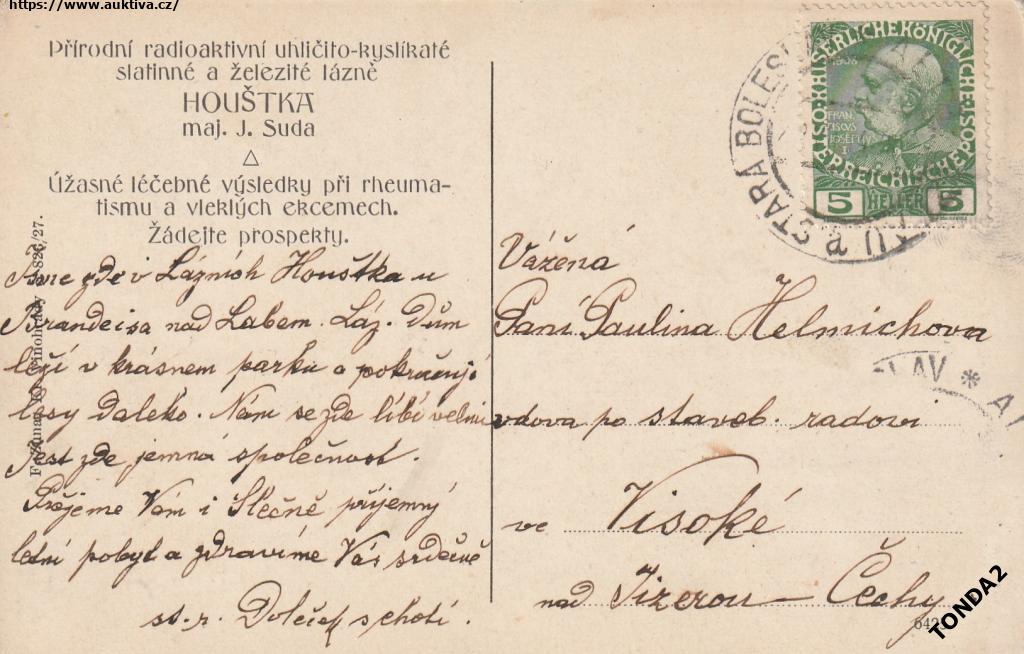 https://www.auktiva.cz/
Přírodní radioaktivní uhličito-kyslíkaté
slatinné a železité lázně
HOUŠTKA
maj. J. Suda
Úžasné léčebné výsledky při rheuma-
tismu a vleklých ekcemech.
Žádejte prospekty.
zde v Lázních Houštka u
Brandeisa nad Labem. Láz. Dům
leží v krásnem parku a pokračují
lesy daleko. Nám se zde líbí velmi
Jest zde jemná společnost.
Přejeme Vám i Slečně příjemný
letní pobyt a zdravíme Vás srdečně
st. r. Doleček s chotí.
Vážená
Paní Paulina Helmichova
vdova po staveb. radovi
ve Visoké
nad Jizerou — Čechy
STARÁ BOLESL
KAISERLICHE KÖNIGLICHE
ÖSTERREICHISCHE POST
1908
FRAN
CISCVS
IOSEPHVS
I
5 HELLER 5
SLAV *
827/27.
TONDA2